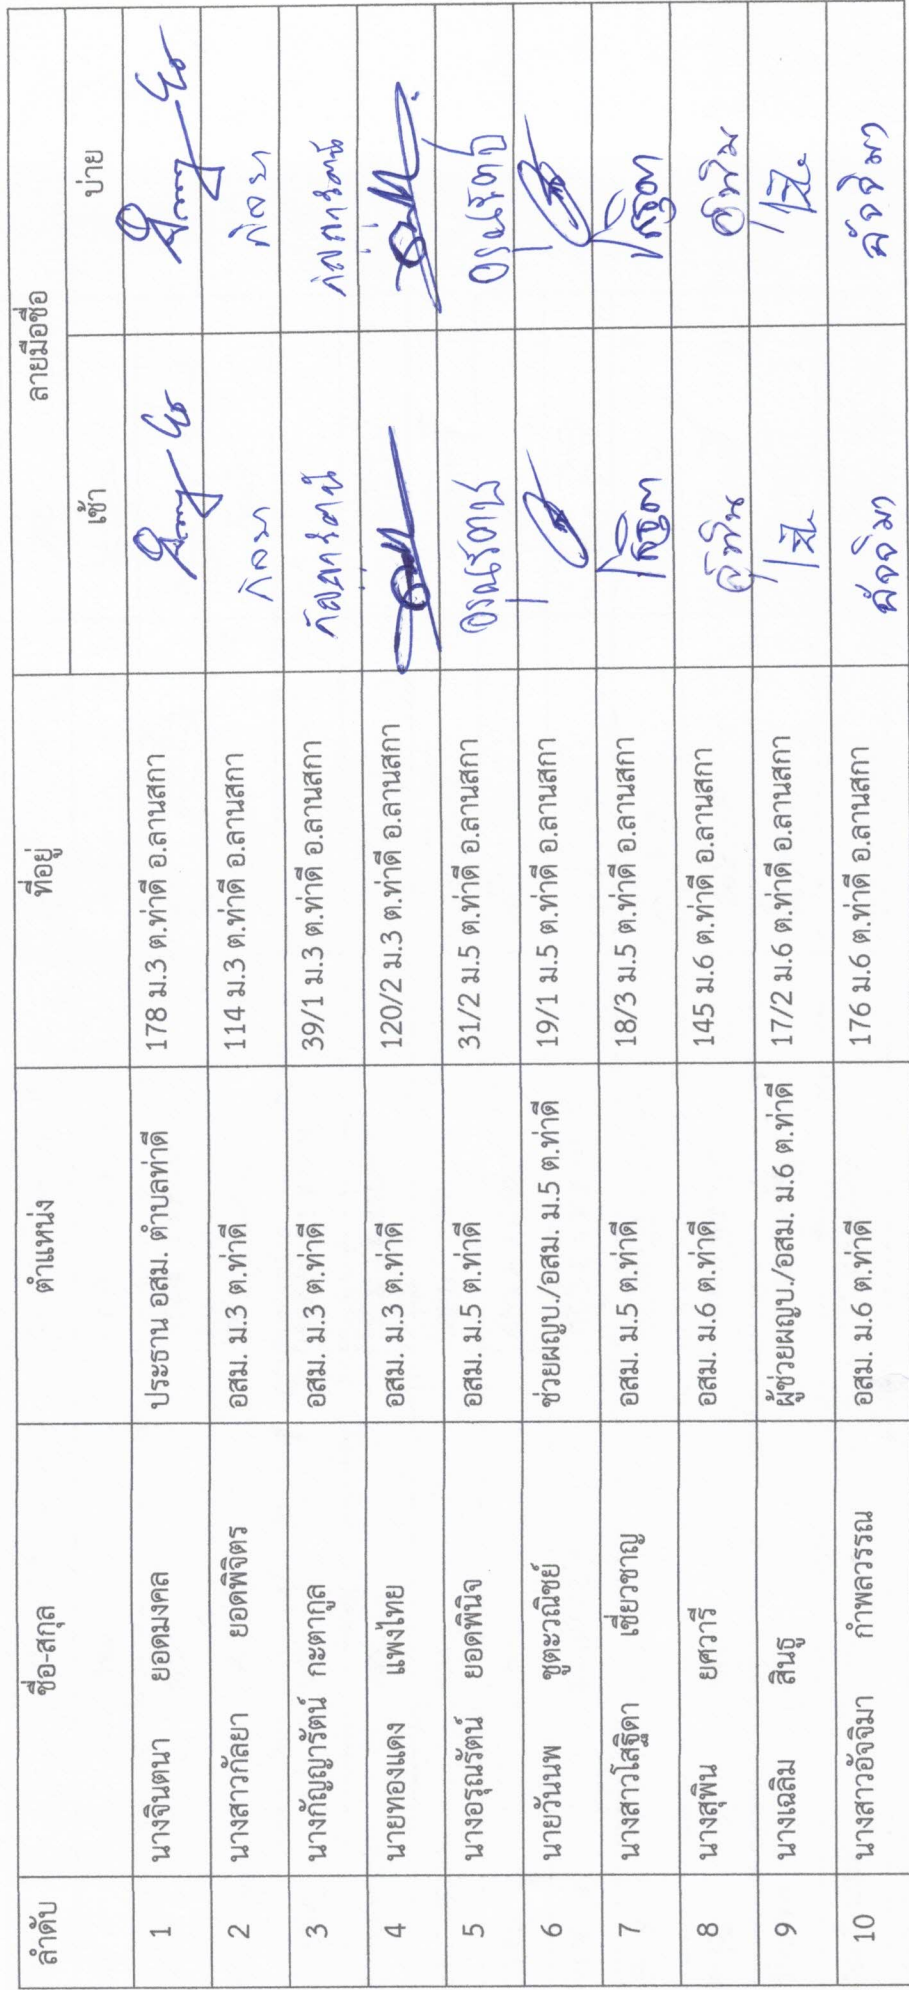 ลำดับ ชื่อ-สกุล ตำแหน่ง ที่อยู่ ลายมือชื่อ
เช้า บ่าย
1 นางจินตนา ยอดมงคล ประธาน อสม. ตำบลท่าดี 178 ม.3 ต.ท่าดี อ.ลานสกา
2 นางสาวกัลยา ยอดพิจิตร อสม. ม.3 ต.ท่าดี 114 ม.3 ต.ท่าดี อ.ลานสกา
3 นางกัญญารัตน์ กะตากูล อสม. ม.3 ต.ท่าดี 39/1 ม.3 ต.ท่าดี อ.ลานสกา
4 นายทองแดง แพงไทย อสม. ม.3 ต.ท่าดี 120/2 ม.3 ต.ท่าดี อ.ลานสกา
5 นางอรุณรัตน์ ยอดพินิจ อสม. ม.5 ต.ท่าดี 31/2 ม.5 ต.ท่าดี อ.ลานสกา
6 นายวันนพ ชูตะวณิชย์ ช่วยผญบ./อสม. ม.5 ต.ท่าดี 19/1 ม.5 ต.ท่าดี อ.ลานสกา
7 นางสาวโสฐิดา เชี่ยวชาญ อสม. ม.5 ต.ท่าดี 18/3 ม.5 ต.ท่าดี อ.ลานสกา
8 นางสุพิน ยศวารี อสม. ม.6 ต.ท่าดี 145 ม.6 ต.ท่าดี อ.ลานสกา
9 นางเฉลิม สินธู ผู้ช่วยผญบ./อสม. ม.6 ต.ท่าดี 17/2 ม.6 ต.ท่าดี อ.ลานสกา
10 นางสาวอัจจิมา กำพลวรรณ อสม. ม.6 ต.ท่าดี 176 ม.6 ต.ท่าดี อ.ลานสกา